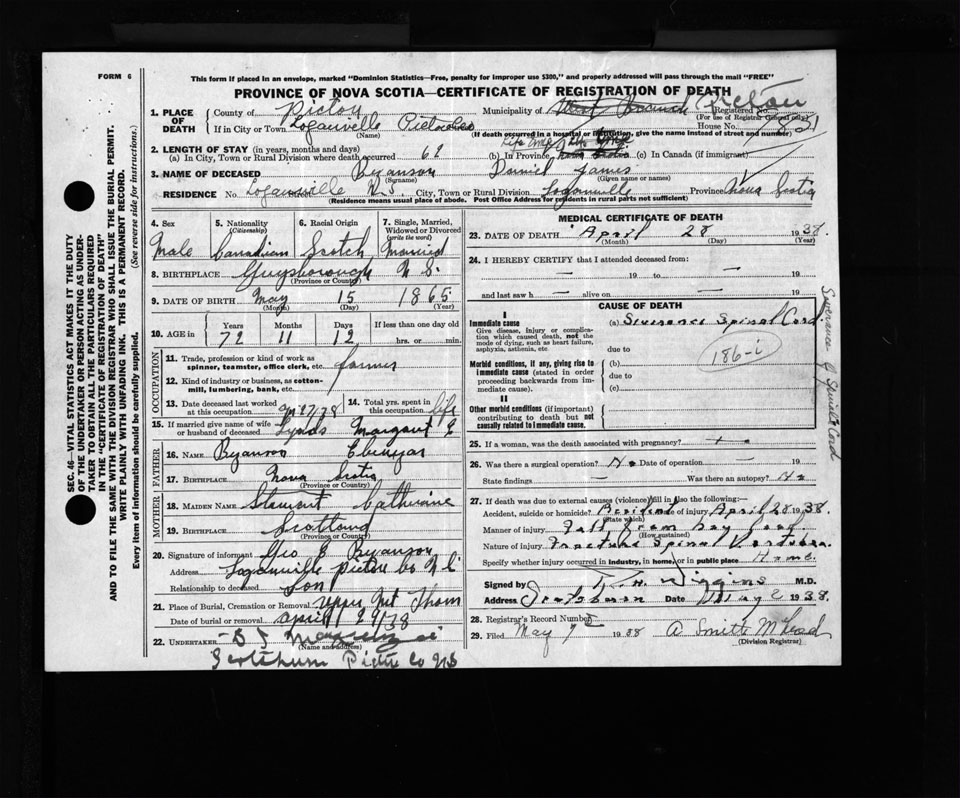 FORM 6
This form if placed in an envelope, marked "Dominion Statistics—Free, penalty for improper use $300," and properly addressed will pass through the mail "FREE"
PROVINCE OF NOVA SCOTIA—CERTIFICATE OF REGISTRATION OF DEATH
SEC. 46—VITAL STATISTICS ACT MAKES IT THE DUTY
OF THE UNDERTAKER OR PERSON ACTING AS UNDER-
TAKER TO OBTAIN ALL THE PARTICULARS REQUIRED
IN THE "CERTIFICATE OF REGISTRATION OF DEATH"
AND TO FILE THE SAME WITH THE DIVISION REGISTRAR WHO SHALL ISSUE THE BURIAL PERMIT.
WRITE PLAINLY WITH UNFADING INK. THIS IS A PERMANENT RECORD.
Every item of information should be carefully supplied. (See reverse side for instructions.)
1. PLACE OF DEATH
County of Pictou Municipality of West Branch Pictou Registered No.
(For use of Registrar General only)
If in City or Town Loganville House No.
(If death occurred in a hospital or institution, give the name instead of street and number)
2. LENGTH OF STAY (in years, months and days)
(a) In City, Town or Rural Division where death occurred 62 (b) In Province Life time (c) In Canada (if immigrant)
3. NAME OF DECEASED Byanson Daniel James
(Surname) (Given name or names)
RESIDENCE No. Logansville N.S. City, Town or Rural Division Loganville Province Nova Scotia
(Residence means usual place of abode. Post Office Address for residents in rural parts not sufficient)
4. Sex
Male
5. Nationality
(Citizenship)
Canadian
6. Racial Origin
Scotch
7. Single, Married, Widowed or Divorced
(write the word)
Married
8. BIRTHPLACE Guysborough N.S.
(Province or Country)
9. DATE OF BIRTH May 15 1865
(Month) (Day) (Year)
10. AGE in
Years Months Days If less than one day old
72 11 12 hrs. or min.
OCCUPATION
11. Trade, profession or kind of work as
spinner, teamster, office clerk, etc. farmer
12. Kind of industry or business, as cotton-
mill, lumbering, bank, etc.
13. Date deceased last worked
at this occupation 27/38
14. Total yrs. spent in
this occupation life
15. If married give name of wife
or husband of deceased Lynds Margaret E
FATHER
16. NAME Byanson
17. BIRTHPLACE Nova Scotia
(Province or Country)
MOTHER
18. MAIDEN NAME Stewart Catherine
19. BIRTHPLACE Scotland
(Province or Country)
20. Signature of informant Geo E Byanson
Address Loganville Pictou Co N S
Relationship to deceased Son
21. Place of Burial, Cremation or Removal Upper Mt Thom
Date of burial or removal April 29/38
22. UNDERTAKER
(Name and address)
Pictou Co NS
MEDICAL CERTIFICATE OF DEATH
23. DATE OF DEATH April 28 1938.
(Month) (Day) (Year)
24. I HEREBY CERTIFY that I attended deceased from:
— 19 to — 19
and last saw h — alive on — 19
CAUSE OF DEATH
I
Immediate cause
Give disease, injury or complication which caused death, not the mode of dying, such as heart failure, asphyxia, asthenia, etc.
(a) Severance Spinal Cord.
due to
186-i
Morbid conditions, if any, giving rise to immediate cause (stated in order proceeding backwards from immediate cause).
(b)
due to
(c)
II
Other morbid conditions (if important) contributing to death but not causally related to immediate cause.
Severance of Spinal Cord
25. If a woman, was the death associated with pregnancy?
26. Was there a surgical operation? No Date of operation —
State findings — Was there an autopsy? No
27. If death was due to external causes (violence) fill in also the following:—
Accident, suicide or homicide? Accident Date of injury April 28 1938.
(State which)
Manner of injury Fall from hay load.
(How sustained)
Nature of injury Fracture Spinal Vertebra.
Specify whether injury occurred in industry, in home, or in public place Home.
Signed by Wiggins M.D.
Address Date May 2 1938.
28. Registrar's Record Number
29. Filed May 7 1938 A Smith McLeod
(Division Registrar)